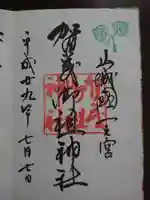 山城國一之宮
賀茂御祖神社
平成廿九年七月七日